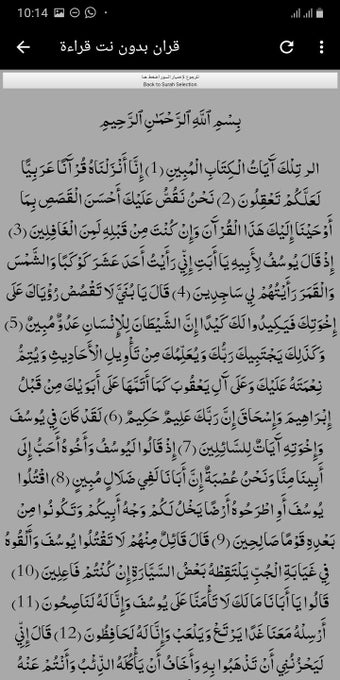 10:14
قران بدون نت قراءة
للرجوع لاختيار السور اضغط هنا
Back to Surah Selection
بِسْمِ ٱللَّهِ ٱلرَّحْمَٰنِ ٱلرَّحِيمِ
الر تِلْكَ آيَاتُ الْكِتَابِ الْمُبِينِ (1) إِنَّا أَنْزَلْنَاهُ قُرْآنًا عَرَبِيًّا
لَعَلَّكُمْ تَعْقِلُونَ (2) نَحْنُ نَقُصُّ عَلَيْكَ أَحْسَنَ الْقَصَصِ بِمَا
أَوْحَيْنَا إِلَيْكَ هَذَا الْقُرْآنَ وَإِنْ كُنْتَ مِنْ قَبْلِهِ لَمِنَ الْغَافِلِينَ (3)
إِذْ قَالَ يُوسُفُ لِأَبِيهِ يَا أَبَتِ إِنِّي رَأَيْتُ أَحَدَ عَشَرَ كَوْكَبًا وَالشَّمْسَ
وَالْقَمَرَ رَأَيْتُهُمْ لِي سَاجِدِينَ (4) قَالَ يَا بُنَيَّ لَا تَقْصُصْ رُؤْيَاكَ عَلَى
إِخْوَتِكَ فَيَكِيدُوا لَكَ كَيْدًا إِنَّ الشَّيْطَانَ لِلْإِنْسَانِ عَدُوٌّ مُبِينٌ (5)
وَكَذَلِكَ يَجْتَبِيكَ رَبُّكَ وَيُعَلِّمُكَ مِنْ تَأْوِيلِ الْأَحَادِيثِ وَيُتِمُّ
نِعْمَتَهُ عَلَيْكَ وَعَلَى آلِ يَعْقُوبَ كَمَا أَتَمَّهَا عَلَى أَبَوَيْكَ مِنْ قَبْلُ
إِبْرَاهِيمَ وَإِسْحَاقَ إِنَّ رَبَّكَ عَلِيمٌ حَكِيمٌ (6) لَقَدْ كَانَ فِي يُوسُفَ
وَإِخْوَتِهِ آيَاتٌ لِلسَّائِلِينَ (7) إِذْ قَالُوا لَيُوسُفُ وَأَخُوهُ أَحَبُّ إِلَى
أَبِينَا مِنَّا وَنَحْنُ عُصْبَةٌ إِنَّ أَبَانَا لَفِي ضَلَالٍ مُبِينٍ (8) اقْتُلُوا
يُوسُفَ أَوِ اطْرَحُوهُ أَرْضًا يَخْلُ لَكُمْ وَجْهُ أَبِيكُمْ وَتَكُونُوا مِنْ
بَعْدِهِ قَوْمًا صَالِحِينَ (9) قَالَ قَائِلٌ مِنْهُمْ لَا تَقْتُلُوا يُوسُفَ وَأَلْقُوهُ
فِي غَيَابَةِ الْجُبِّ يَلْتَقِطْهُ بَعْضُ السَّيَّارَةِ إِنْ كُنْتُمْ فَاعِلِينَ (10)
قَالُوا يَا أَبَانَا مَا لَكَ لَا تَأْمَنَّا عَلَى يُوسُفَ وَإِنَّا لَهُ لَنَاصِحُونَ (11)
أَرْسِلْهُ مَعَنَا غَدًا يَرْتَعْ وَيَلْعَبْ وَإِنَّا لَهُ لَحَافِظُونَ (12) قَالَ إِنِّي
لَيَحْزُنُنِي أَنْ تَذْهَبُوا بِهِ وَأَخَافُ أَنْ يَأْكُلَهُ الذِّئْبُ وَأَنْتُمْ عَنْهُ